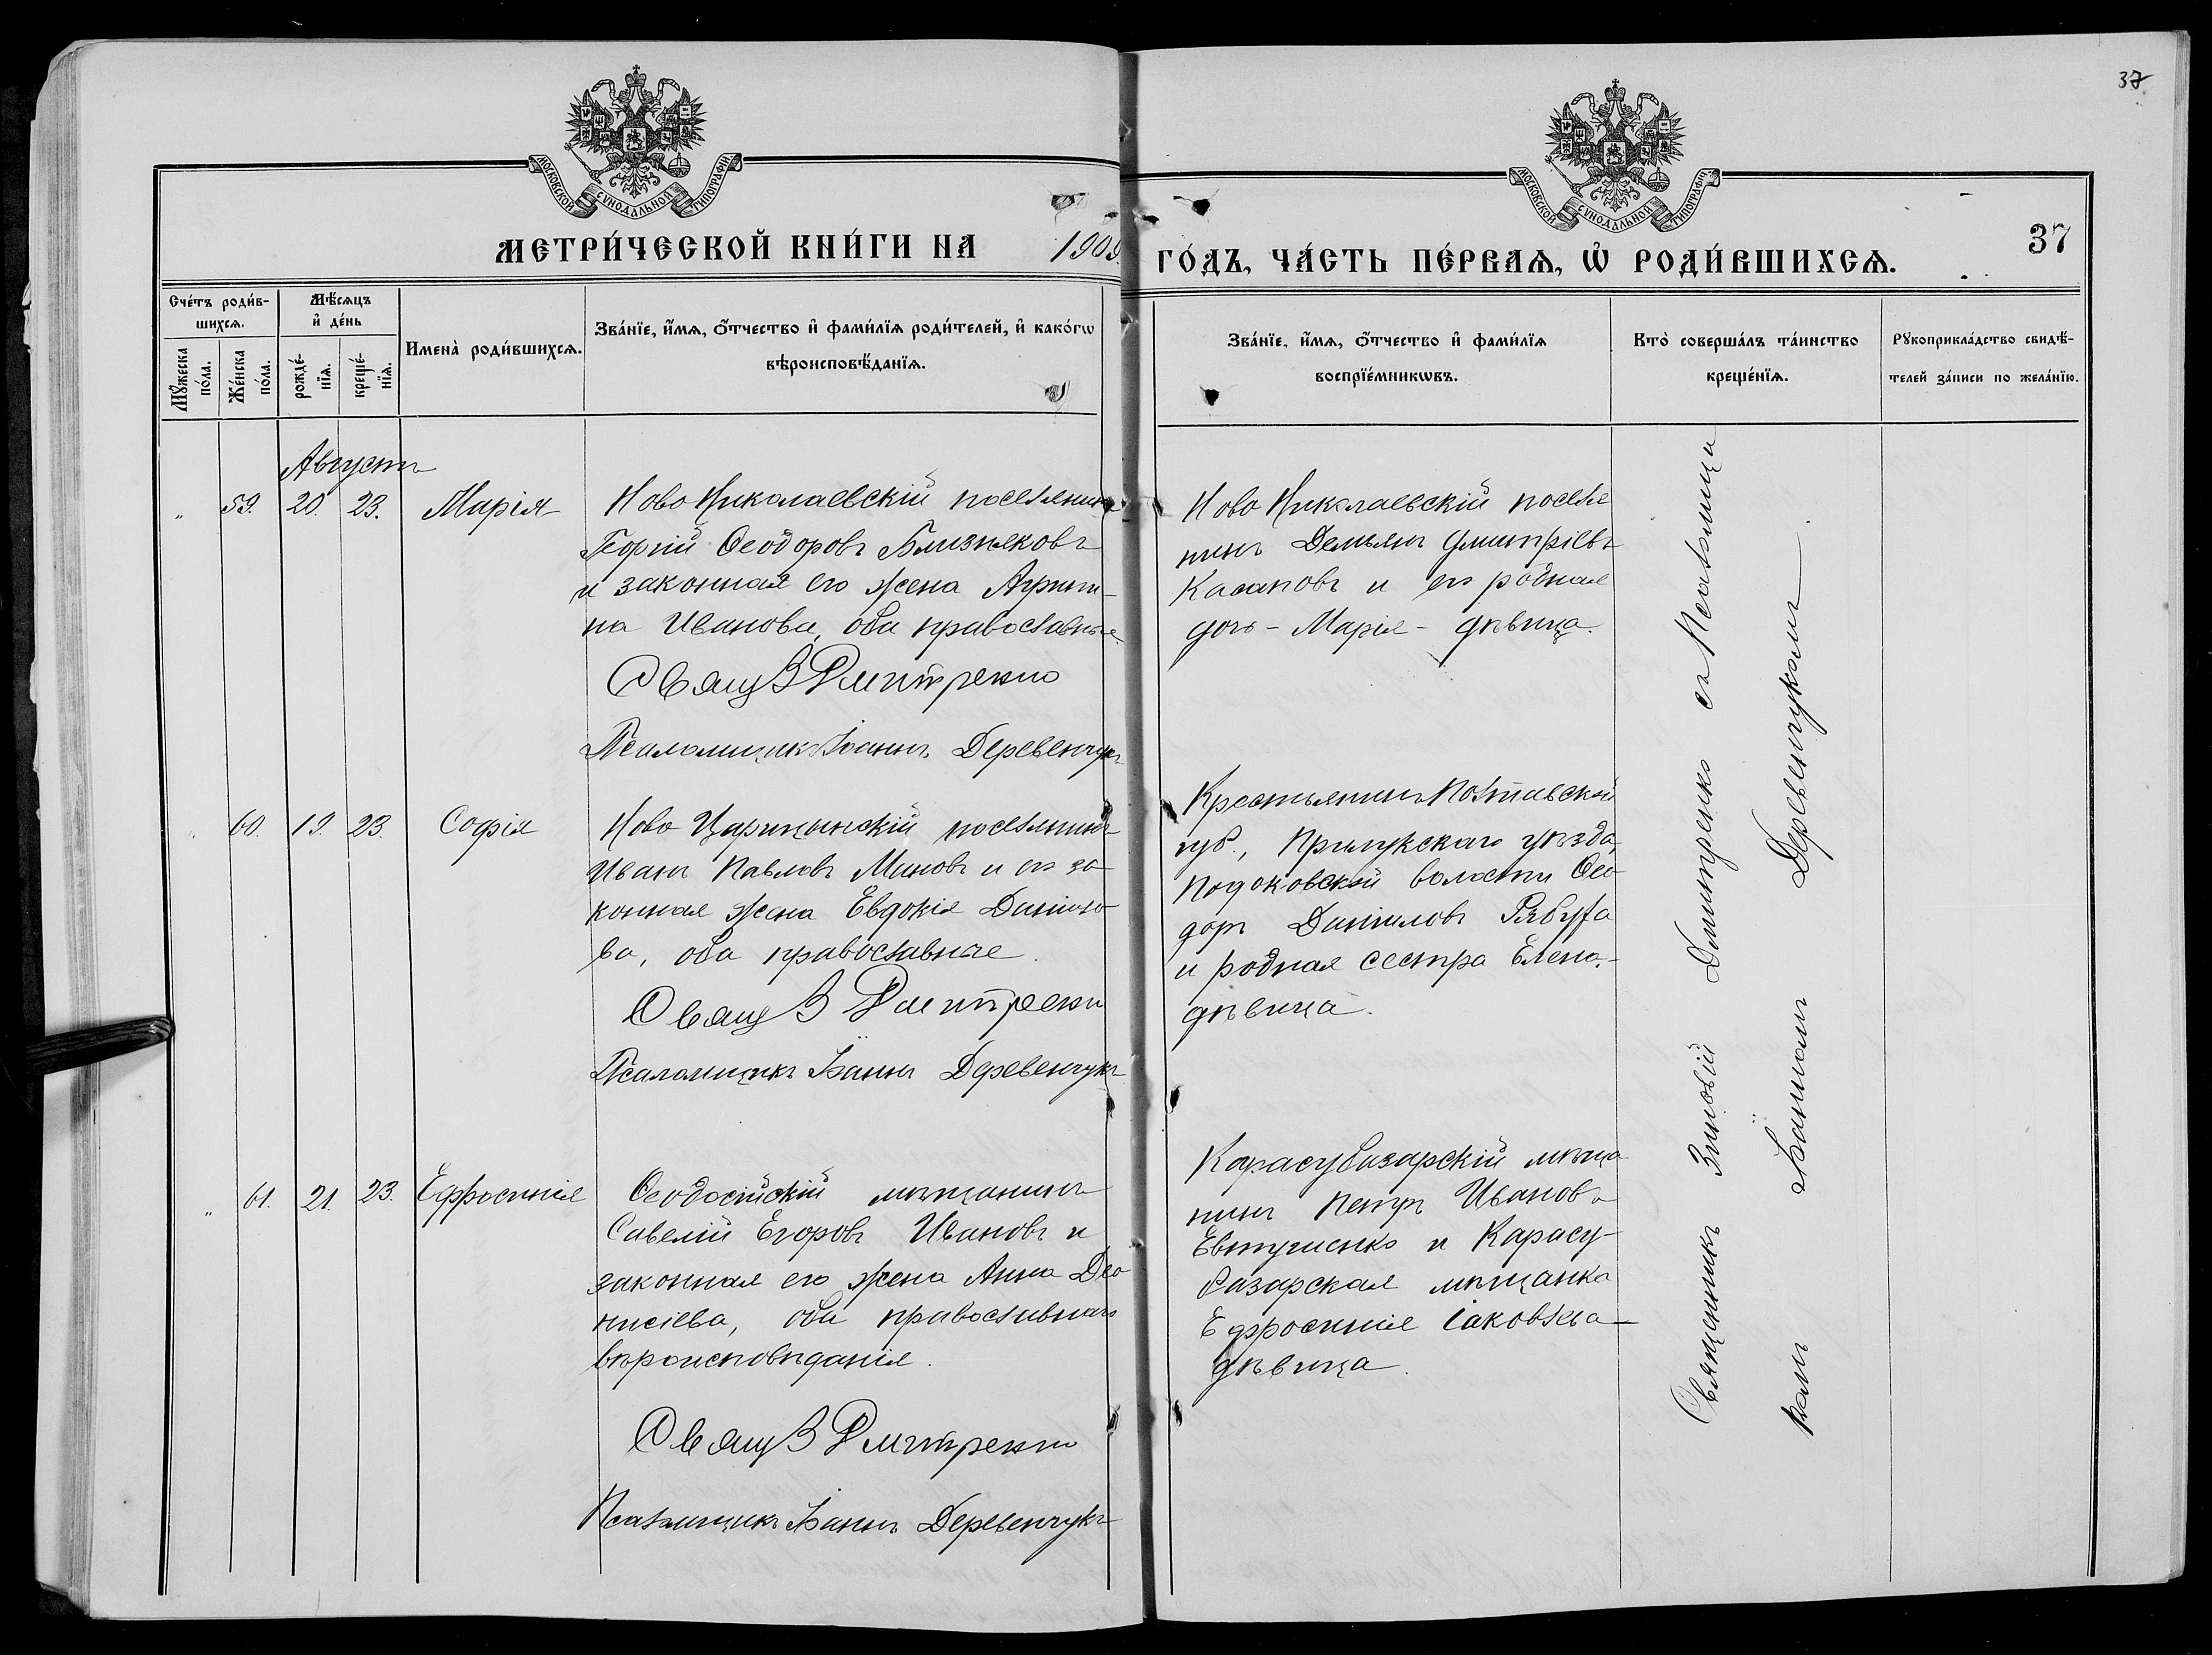 37
МОСКОВСКОЙ СѴНОДАЛЬНОЙ ТИПОГРАФІИ
МОСКОВСКОЙ СѴНОДАЛЬНОЙ ТИПОГРАФІИ
МЕТРИ́ЧЕСКОЙ КНИ́ГИ НА 1909
ГО́ДЪ, ЧА́СТЬ ПЕ́РВАѦ, Ѡ҆ РОДИ́ВШИХСѦ.
37
Сче́тъ роди́в-
шихсѧ.
Мꙋ́жеска
по́ла.
Же́нска
по́ла.
Мѣ́сѧцъ
и҆ де́нь
рожде́-
нїѧ.
креще́-
нїѧ.
Имена̀ роди́вшихсѧ.
Зва́нїе, и҆́мѧ, ѻ҆́тчество и҆ фами́лїѧ роди́телей, и҆ како́гѡ
вѣроисповѣ́данїѧ.
Зва́нїе, и҆́мѧ, ѻ҆́тчество и҆ фами́лїѧ
воспрїе́мникѡвъ.
Кто̀ соверша́лъ та́инство
креще́нїѧ.
Рꙋкоприкла́дство свидѣ́-
телей за́писи по жела́нїю.
Августъ
" 59. 20. 23. Марія
Ново Николаевскій поселянинъ
Георгій Ѳеодоровъ Близняковъ
и законная его жена Агрипи-
на Иванова, оба православные.
Свящ З Дмитренко
Псаломщикъ Іоаннъ Деревенчукъ
Ново Николаевскій поселя
нинъ Демьянъ Димитріевъ
Касаповъ и его родная
дочь - Марія - дѣвица.
" 60. 19. 23. Софія
Ново Царицынскій поселянинъ
Иванъ Павловъ Миновъ и его за
конная жена Евдокія Данило
ва, оба православные.
Свящ З Дмитренко
Псаломщикъ Іоаннъ Деревенчукъ
Крестьянинъ Полтавской
губ., Прилукскаго уѣзда,
волости Ѳео
доръ Даниловъ Рябуха
и родная сестра Елена -
дѣвица.
" 61. 21. 23. Ефросинія
Ѳеодосійскій мѣщанинъ
Савелій Егоровъ Ивановъ и
законная его жена Анна Дио
нисіева, оба православнаго
вѣроисповѣданія.
Свящ З Дмитренко
Псаломщикъ Іоаннъ Деревенчукъ
Карасубазарскій мѣща
нинъ Петръ Ивановъ
Евтушенко и Карасу-
базарская мѣщанка
Ефросинія Іаковлева -
дѣвица.
Священникъ Зиновій Димитренко съ Псаломщи
комъ Іоанномъ Деревенчукомъ.